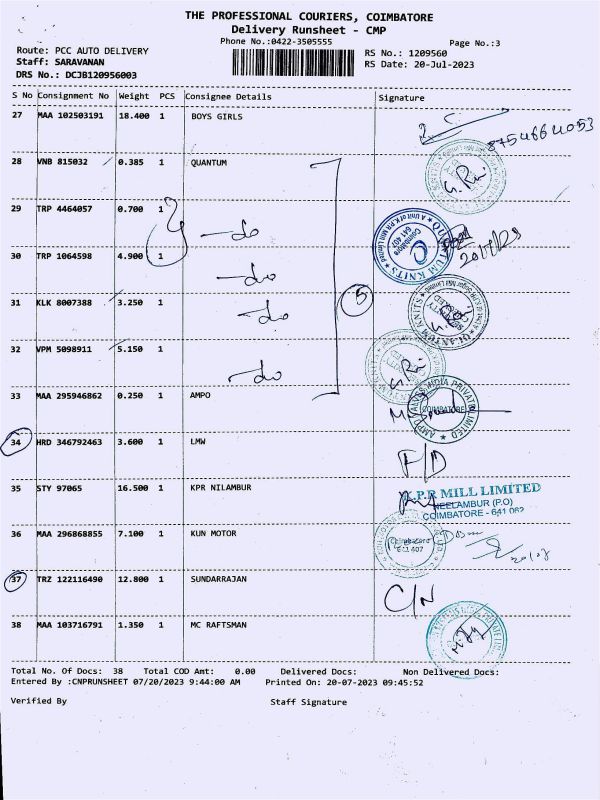 THE PROFESSIONAL COURIERS, COIMBATORE
Delivery Runsheet - CMP
Phone No.:0422-3505555
Page No.:3
Route: PCC AUTO DELIVERY
RS No.: 1209560
Staff: SARAVANAN
RS Date: 20-Jul-2023
DRS No.: DCJB120956003
S No Consignment No Weight PCS Consignee Details Signature
27 MAA 102503191 18.400 1 BOYS GIRLS
8754664053
28 VNB 815032 0.385 1 QUANTUM
29 TRP 4464057 0.700 1 -do
30 TRP 1064598 4.900 1 -do
31 KLK 8007388 3.250 1 -do
5
32 VPM 5098911 5.150 1 -do
33 MAA 295946862 0.250 1 AMPO
COIMBATORE
34 HRD 346792463 3.600 1 LMW
F/D
35 STY 97065 16.500 1 KPR NILAMBUR
K.P.R MILL LIMITED
NEELAMBUR (P.O)
COIMBATORE - 641 062
36 MAA 296868855 7.100 1 KUN MOTOR
Coimbatore
641 407
37 TRZ 122116490 12.800 1 SUNDARRAJAN
C/N
38 MAA 103716791 1.350 1 MC RAFTSMAN
Total No. Of Docs: 38 Total COD Amt: 0.00 Delivered Docs: Non Delivered Docs:
Entered By :CNPRUNSHEET 07/20/2023 9:44:00 AM Printed On: 20-07-2023 09:45:52
Verified By Staff Signature